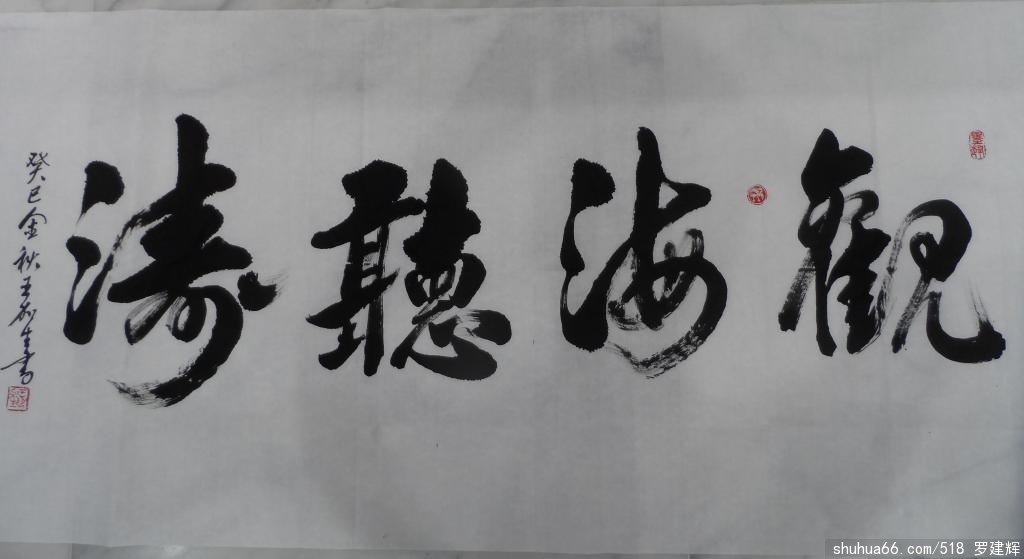 觀海聽濤
癸巳金秋王
書
shuhua66.com/518 罗建辉